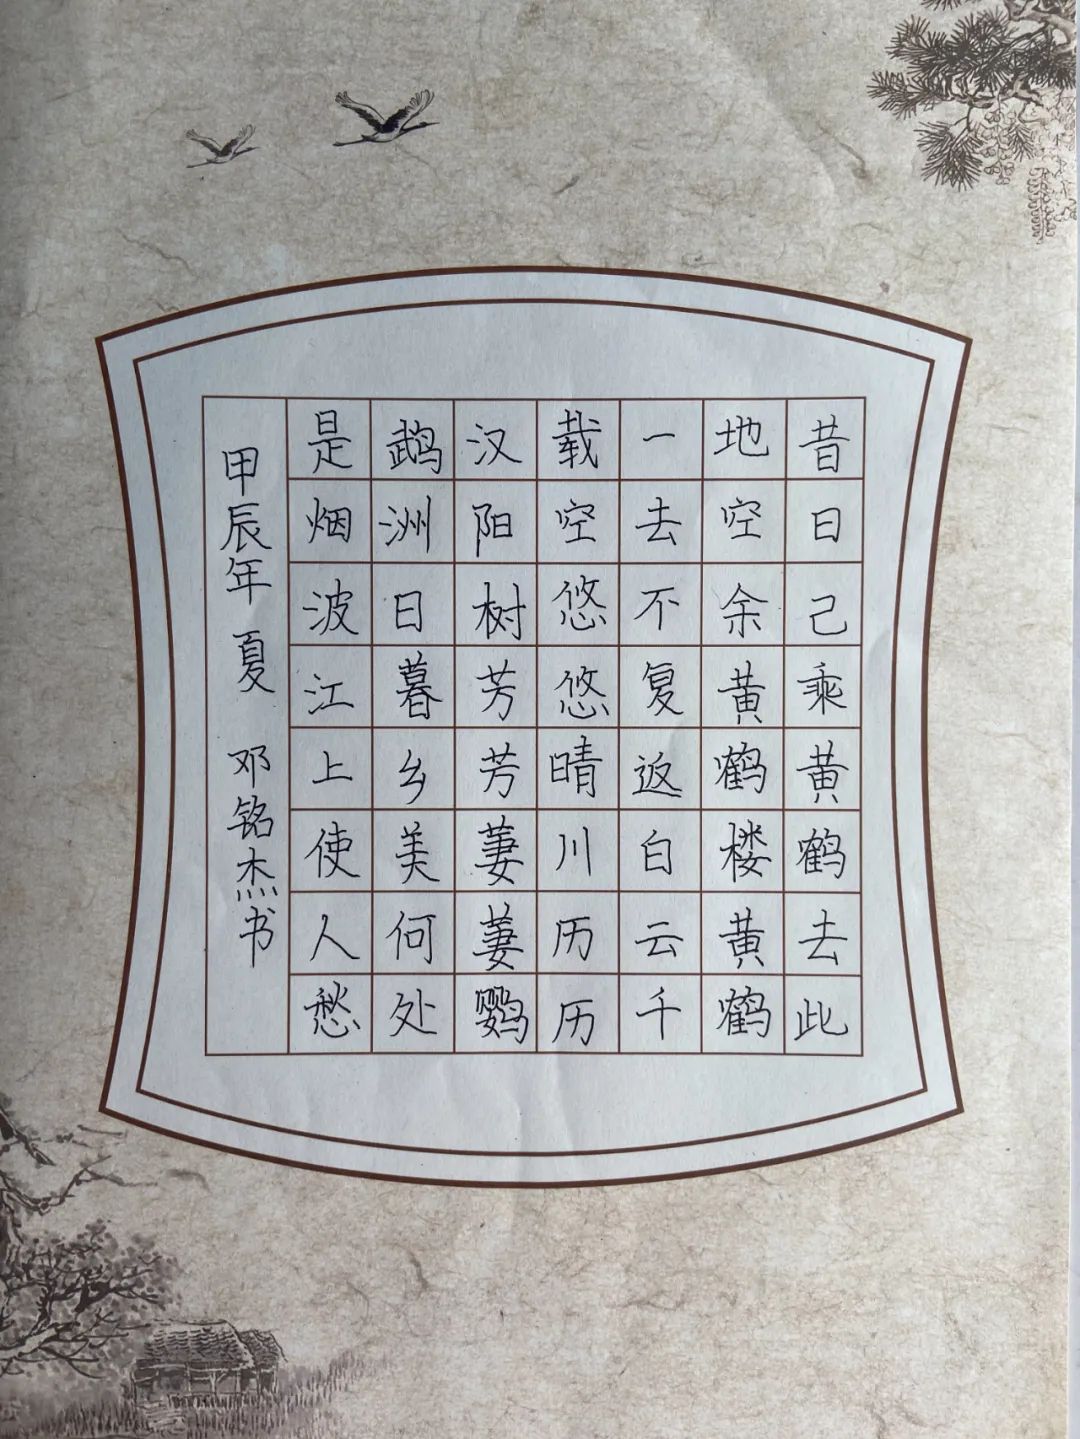 昔日己乘黄鹤去此
地空余黄鹤楼黄鹤
一去不复返白云千
载空悠悠晴川历历
汉阳树芳芳萋萋鹦
鹉洲日暮乡美何处
是烟波江上使人愁
甲辰年 夏 邓铭杰书